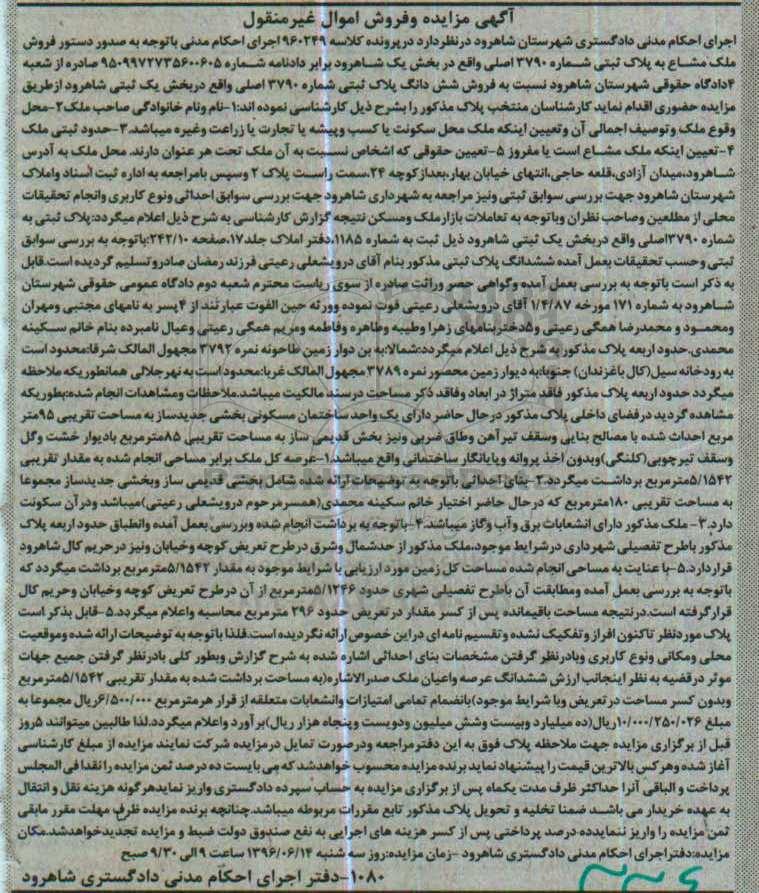 آگهی مزایده وفروش اموال غیرمنقول
اجرای احکام مدنی دادگستری شهرستان شاهرود درنظردارد درپرونده کلاسه ۹۶۰۲۴۹ اجرای احکام مدنی باتوجه به صدور دستور فروش
ملک مشاع به پلاک ثبتی شماره ۳۷۹۰ اصلی واقع در بخش یک شاهرود برابر دادنامه شماره ۹۵۰۹۹۷۲۷۳۵۶۰۰۶۰۵ صادره از شعبه
۴دادگاه حقوقی شهرستان شاهرود نسبت به فروش شش دانگ پلاک ثبتی شماره ۳۷۹۰ اصلی واقع دربخش یک ثبتی شاهرود ازطریق
مزایده حضوری اقدام نماید کارشناسان منتخب پلاک مذکور را بشرح ذیل کارشناسی نموده اند:۱-نام ونام خانوادگی صاحب ملک۲-محل
وقوع ملک وتوصیف اجمالی آن وتعیین اینکه ملک محل سکونت یا کسب وپیشه یا تجارت یا زراعت وغیره میباشد.۳-حدود ثبتی ملک
۴-تعیین اینکه ملک مشاع است یا مفروز ۵-تعیین حقوقی که اشخاص نسبت به آن ملک تحت هر عنوان دارند. محل ملک به آدرس
شاهرود،میدان آزادی،قلعه حاجی،انتهای خیابان بهار،بعدازکوچه ۲۴،سمت راست پلاک ۲ وسپس بامراجعه به اداره ثبت اسناد واملاک
شهرستان شاهرود جهت بررسی سوابق ثبتی ونیز مراجعه به شهرداری شاهرود جهت بررسی سوابق احداثی ونوع کاربری وانجام تحقیقات
محلی از مطلعین وصاحب نظران وباتوجه به تعاملات بازارملک ومسکن نتیجه گزارش کارشناسی به شرح ذیل اعلام میگردد:پلاک ثبتی به
شماره ۳۷۹۰اصلی واقع دربخش یک ثبتی شاهرود ذیل ثبت به شماره ۱۱۸۵،دفتر املاک جلد۱۷،صفحه ۲۴۲/۱۰:باتوجه به بررسی سوابق
ثبتی وحسب تحقیقات بعمل آمده ششدانگ پلاک ثبتی مذکور بنام آقای درویشعلی رعیتی فرزند رمضان صادروتسلیم گردیده است.قابل
به ذکر است باتوجه به بررسی بعمل آمده وگواهی حصر وراثت صادره از سوی ریاست محترم شعبه دوم دادگاه عمومی حقوقی شهرستان
شاهرود به شماره ۱۷۱ مورخه ۱/۴/۸۷ آقای درویشعلی رعیتی فوت نموده وورثه حین الفوت عبارتند از ۴پسر به نامهای مجتبی ومهران
ومحمود و محمدرضا همگی رعیتی و۵دختربنامهای زهرا وطیبه وطاهره وفاطمه ومریم همگی رعیتی وعیال نامبرده بنام خانم سکینه
محمدی.حدود اربعه پلاک مذکوربه شرح ذیل اعلام میگردد:شمالا:به بن دوار زمین طاحونه نمره ۳۷۹۲ مجهول المالک شرقا:محدود است
به رودخانه سیل(کال باغزندان) جنوبا:به دیوار زمین محصور نمره ۳۷۸۹ مجهول المالک غربا:محدود است به نهرجلالی همانطوریکه ملاحظه
میگردد حدود اربعه پلاک مذکور فاقد متراژ در ابعاد وفاقد ذکر مساحت درسند مالکیت میباشد.ملاحظات ومشاهدات انجام شده:بطوریکه
مشاهده گردید درفضای داخلی پلاک مذکور درحال حاضر دارای یک واحد ساختمان مسکونی بخشی جدیدساز به مساحت تقریبی ۹۵متر
مربع احداث شده با مصالح بنایی وسقف تیرآهن وطاق ضربی ونیز بخش قدیمی ساز به مساحت تقریبی ۸۵مترمربع بادیوار خشت وگل
وسقف تیرچوبی(کلنگی)وبدون اخذ پروانه وپایانکار ساختمانی واقع میباشد.۱-عرصه کل ملک برابر مساحی انجام شده به مقدار تقریبی
۵/۱۵۴۲مترمربع برداشت میگردد.۲-بنای احداثی باتوجه به توضیحات ارائه شده شامل بخشی قدیمی ساز وبخشی جدیدساز مجموعا
به مساحت تقریبی ۱۸۰مترمربع که درحال حاضر اختیار خانم سکینه محمدی(همسرمرحوم درویشعلی رعیتی)میباشد ودرآن سکونت
دارد.۳- ملک مذکور دارای انشعابات برق وآب وگاز میباشد.۴-باتوجه به برداشت انجام شده وبررسی بعمل آمده وانطباق حدود اربعه پلاک
مذکور باطرح تفصیلی شهرداری درشرایط موجود،ملک مذکور از حدشمال وشرق درطرح تعریض کوچه وخیابان ونیز درحریم کال شاهرود
قراردارد.۵-با عنایت به مساحی انجام شده مساحت کل زمین مورد ارزیابی با شرایط موجود به مقدار ۵/۱۵۴۲مترمربع برداشت میگردد که
باتوجه به بررسی بعمل آمده ومطابقت آن باطرح تفصیلی شهری حدود ۵/۱۲۴۶مترمربع از آن درطرح تعریض کوچه وخیابان وحریم کال
قرارگرفته است.درنتیجه مساحت باقیمانده پس از کسر مقدار درتعریض حدود ۲۹۶ مترمربع محاسبه واعلام میگردد.۵-قابل بذکر است
پلاک موردنظر تاکنون افراز وتفکیک نشده وتقسیم نامه ای دراین خصوص ارائه نگردیده است.فلذا باتوجه به توضیحات ارائه شده وموقعیت
محلی ومکانی ونوع کاربری وبادرنظر گرفتن مشخصات بنای احداثی اشاره شده به شرح گزارش وبطور کلی بادرنظر گرفتن جمیع جهات
موثر درقضیه به نظر اینجانب ارزش ششدانگ عرصه واعیان ملک صدرالاشاره(به مساحت برداشت شده به مقدار تقریبی ۵/۱۵۴۲مترمربع
وبدون کسر مساحت درتعریض وبا شرایط موجود)بانضمام تمامی امتیازات وانشعابات متعلقه از قرار هرمترمربع ۶/۵۰۰/۰۰۰ریال مجموعا به
مبلغ ۱۰/۰۰۰/۲۵۰/۰۲۶ریال(ده میلیارد وبیست وشش میلیون ودویست وپنجاه هزار ریال)برآورد واعلام میگردد.لذا طالبین میتوانند ۵روز
قبل از برگزاری مزایده جهت ملاحظه پلاک فوق به این دفترمراجعه ودرصورت تمایل درمزایده شرکت نمایند مزایده از مبلغ کارشناسی
آغاز شده وهرکس بالاترین قیمت را پیشنهاد نماید برنده مزایده محسوب خواهدشد که می بایست ده درصد ثمن مزایده را نقدا فی المجلس
پرداخت و الباقی آنرا حداکثر ظرف مدت یکماه پس از برگزاری مزایده به حساب سپرده دادگستری واریز نمایدهرگونه هزینه نقل و انتقال
به عهده خریدار می باشد ضمنا تخلیه و تحویل پلاک مذکور تابع مقررات مربوطه میباشد.چنانچه برنده مزایده ظرف مهلت مقرر مابقی
ثمن مزایده را واریز ننمایدده درصد پرداختی پس از کسر هزینه های اجرایی به نفع صندوق دولت ضبط و مزایده تجدیدخواهدشد.مکان
مزایده:دفتراجرای احکام مدنی دادگستری شاهرود -زمان مزایده:روز سه شنبه ۱۳۹۶/۰۶/۱۴ ساعت ۹الی ۹/۳۰ صبح
۱۰۸۰-دفتر اجرای احکام مدنی دادگستری شاهرود